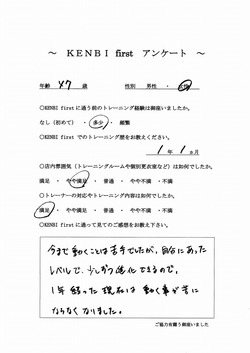 ～ KENBI first アンケート ～
年齢 47 歳 性別 男性 ・ 女性
○KENBI firstに通う前のトレーニング経験は御座いましたか。
なし（初めて） ・ 多少 ・ 頻繁
○KENBI firstでのトレーニング歴をお教えください。
1 年 1 ヵ月
○店内雰囲気（トレーニングルームや個別更衣室など）は如何でしたか。
満足 ・ やや満足 ・ 普通 ・ やや不満 ・ 不満
○トレーナーの対応やトレーニング内容は如何でしたか。
満足 ・ やや満足 ・ 普通 ・ やや不満 ・ 不満
○KENBI firstに通って見てのご感想をお教え下さい。
今まで動くことは苦手でしたが、自分にあった
レベルで、少しずつ進化できるので、
1年経った現在は動く事が苦に
ならなくなりました。
ご協力有難う御座いました